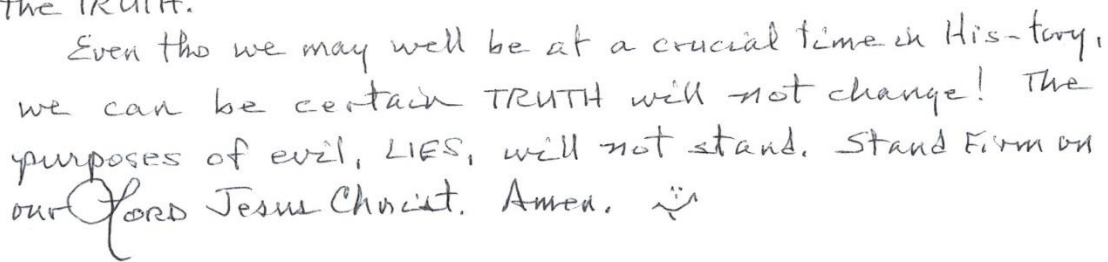 the TRUTH.
Even tho we may well be at a crucial time in His-tory,
we can be certain TRUTH will not change! The
purposes of evil, LIES, will not stand. Stand Firm on
our LORD Jesus Christ. Amen.